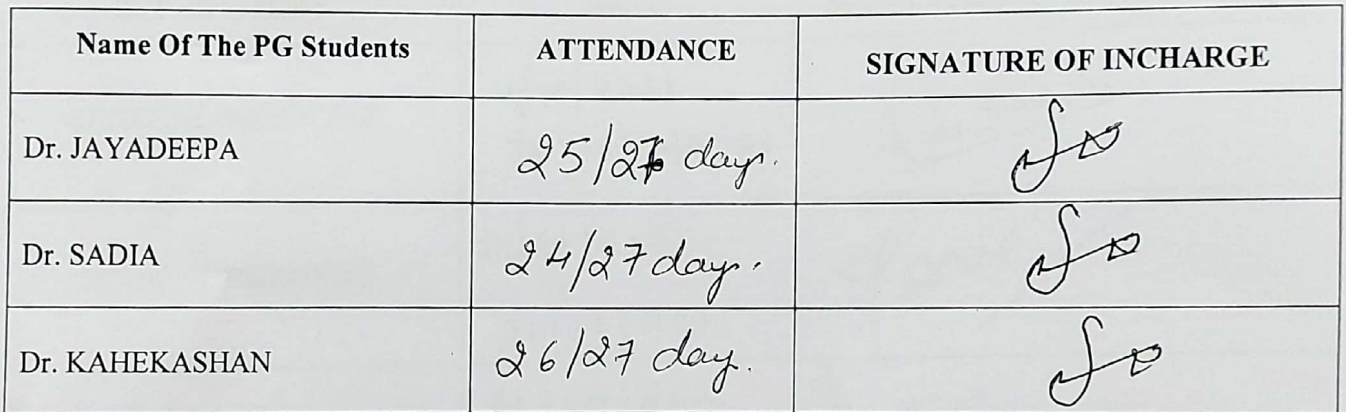 Name Of The PG Students ATTENDANCE SIGNATURE OF INCHARGE
Dr. JAYADEEPA 25/27 days.
Dr. SADIA 24/27 days.
Dr. KAHEKASHAN 26/27 day.